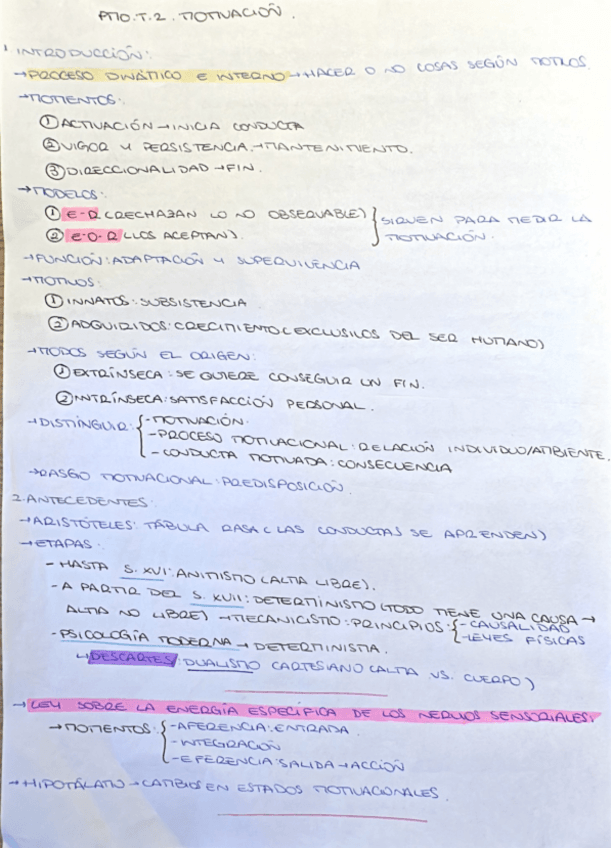 PMO.T.2. MOTIVACIÓN.
1 INTRODUCCIÓN:
→PROCESO DINÁMICO E INTERNO→HACER O NO COSAS SEGÚN MOTIVOS.
→MOMENTOS:
① ACTIVACIÓN→INICIA CONDUCTA
② VIGOR Y PERSISTENCIA→MANTENIMIENTO.
③ DIRECCIONALIDAD→FIN.
→MODELOS:
① E-R (RECHAZAN LO NO OBSERVABLE) } SIRVEN PARA MEDIR LA
② E-O-R (LOS ACEPTAN). MOTIVACIÓN.
→FUNCIÓN: ADAPTACIÓN Y SUPERVIVENCIA
→MOTIVOS:
① INNATOS: SUBSISTENCIA
② ADQUIRIDOS: CRECIMIENTO (EXCLUSIVOS DEL SER HUMANO)
→MODOS SEGÚN EL ORIGEN:
① EXTRÍNSECA: SE QUIERE CONSEGUIR UN FIN.
② INTRÍNSECA: SATISFACCIÓN PERSONAL.
→DISTINGUIR: { -MOTIVACIÓN.
-PROCESO MOTIVACIONAL: RELACIÓN INDIVIDUO/AMBIENTE.
-CONDUCTA MOTIVADA: CONSECUENCIA
→RASGO MOTIVACIONAL: PREDISPOSICIÓN.
2. ANTECEDENTES:
→ARISTÓTELES: TÁBULA RASA (LAS CONDUCTAS SE APRENDEN)
→ETAPAS:
- HASTA S. XVI: ANIMISMO (ALMA LIBRE).
- A PARTIR DEL S. XVII: DETERMINISMO (TODO TIENE UNA CAUSA→
ALMA NO LIBRE)→MECANICISMO: PRINCIPIOS: { -CAUSALIDAD
-LEYES FÍSICAS
-PSICOLOGÍA MODERNA→DETERMINISTA.
↳DESCARTES: DUALISMO CARTESIANO (ALMA VS. CUERPO)
→LEY SOBRE LA ENERGÍA ESPECÍFICA DE LOS NERVIOS SENSORIALES:
→MOMENTOS: { -AFERENCIA: ENTRADA
-INTEGRACIÓN
-EFERENCIA: SALIDA→ACCIÓN
→HIPOTÁLAMO→CAMBIOS EN ESTADOS MOTIVACIONALES.